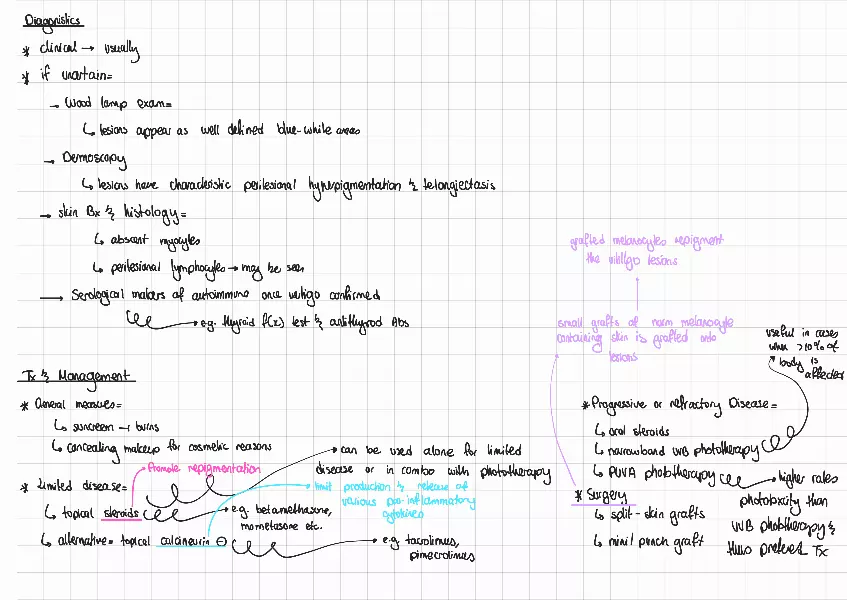 Diagonistics
* clinical → usually
* if uncertain=
→ Wood lamp exam=
↳ lesions appear as well defined blue-white areas
→ Demoscopy
↳ lesions have characteristic perilesional hyperpigmentation & telangiectasis
→ skin Bx & histology=
↳ abscent myocytes
↳ perilesional lymphocytes → may be seen
→ Serological makers of autoimmune once vertigo confirmed
→ e.g. thyroid f(x) test & antithyroid Abs
Tx & Management
* General measures=
↳ suncreen → burns
↳ concealing makeup for cosmetic reasons
* Limited disease=
↳ topical steroids
Promote repigmentation
→ can be used alone for limited
disease or in combo with phototherapy
→ e.g. betamethasone,
mometasone etc.
↳ alternative= topical calcineurin ⊖
limit production & release of
various pro-inflammatory
cytokines
→ e.g. tacrolimus,
pimecrolimus
* Progressive or refractory Disease=
↳ oral steroids
↳ narrowband UVB phototherapy
useful in cases
when >10% of
body is
affected
↳ PUVA phototherapy
→ higher rates
phototoxicity than
UVB phototherapy &
thus prefered Tx
* Surgery
↳ split-skin grafts
↳ mini punch graft
small grafts of norm melanocyte
containing skin is grafted onto
lesions
grafted melanocytes repigment
the vitiligo lesions